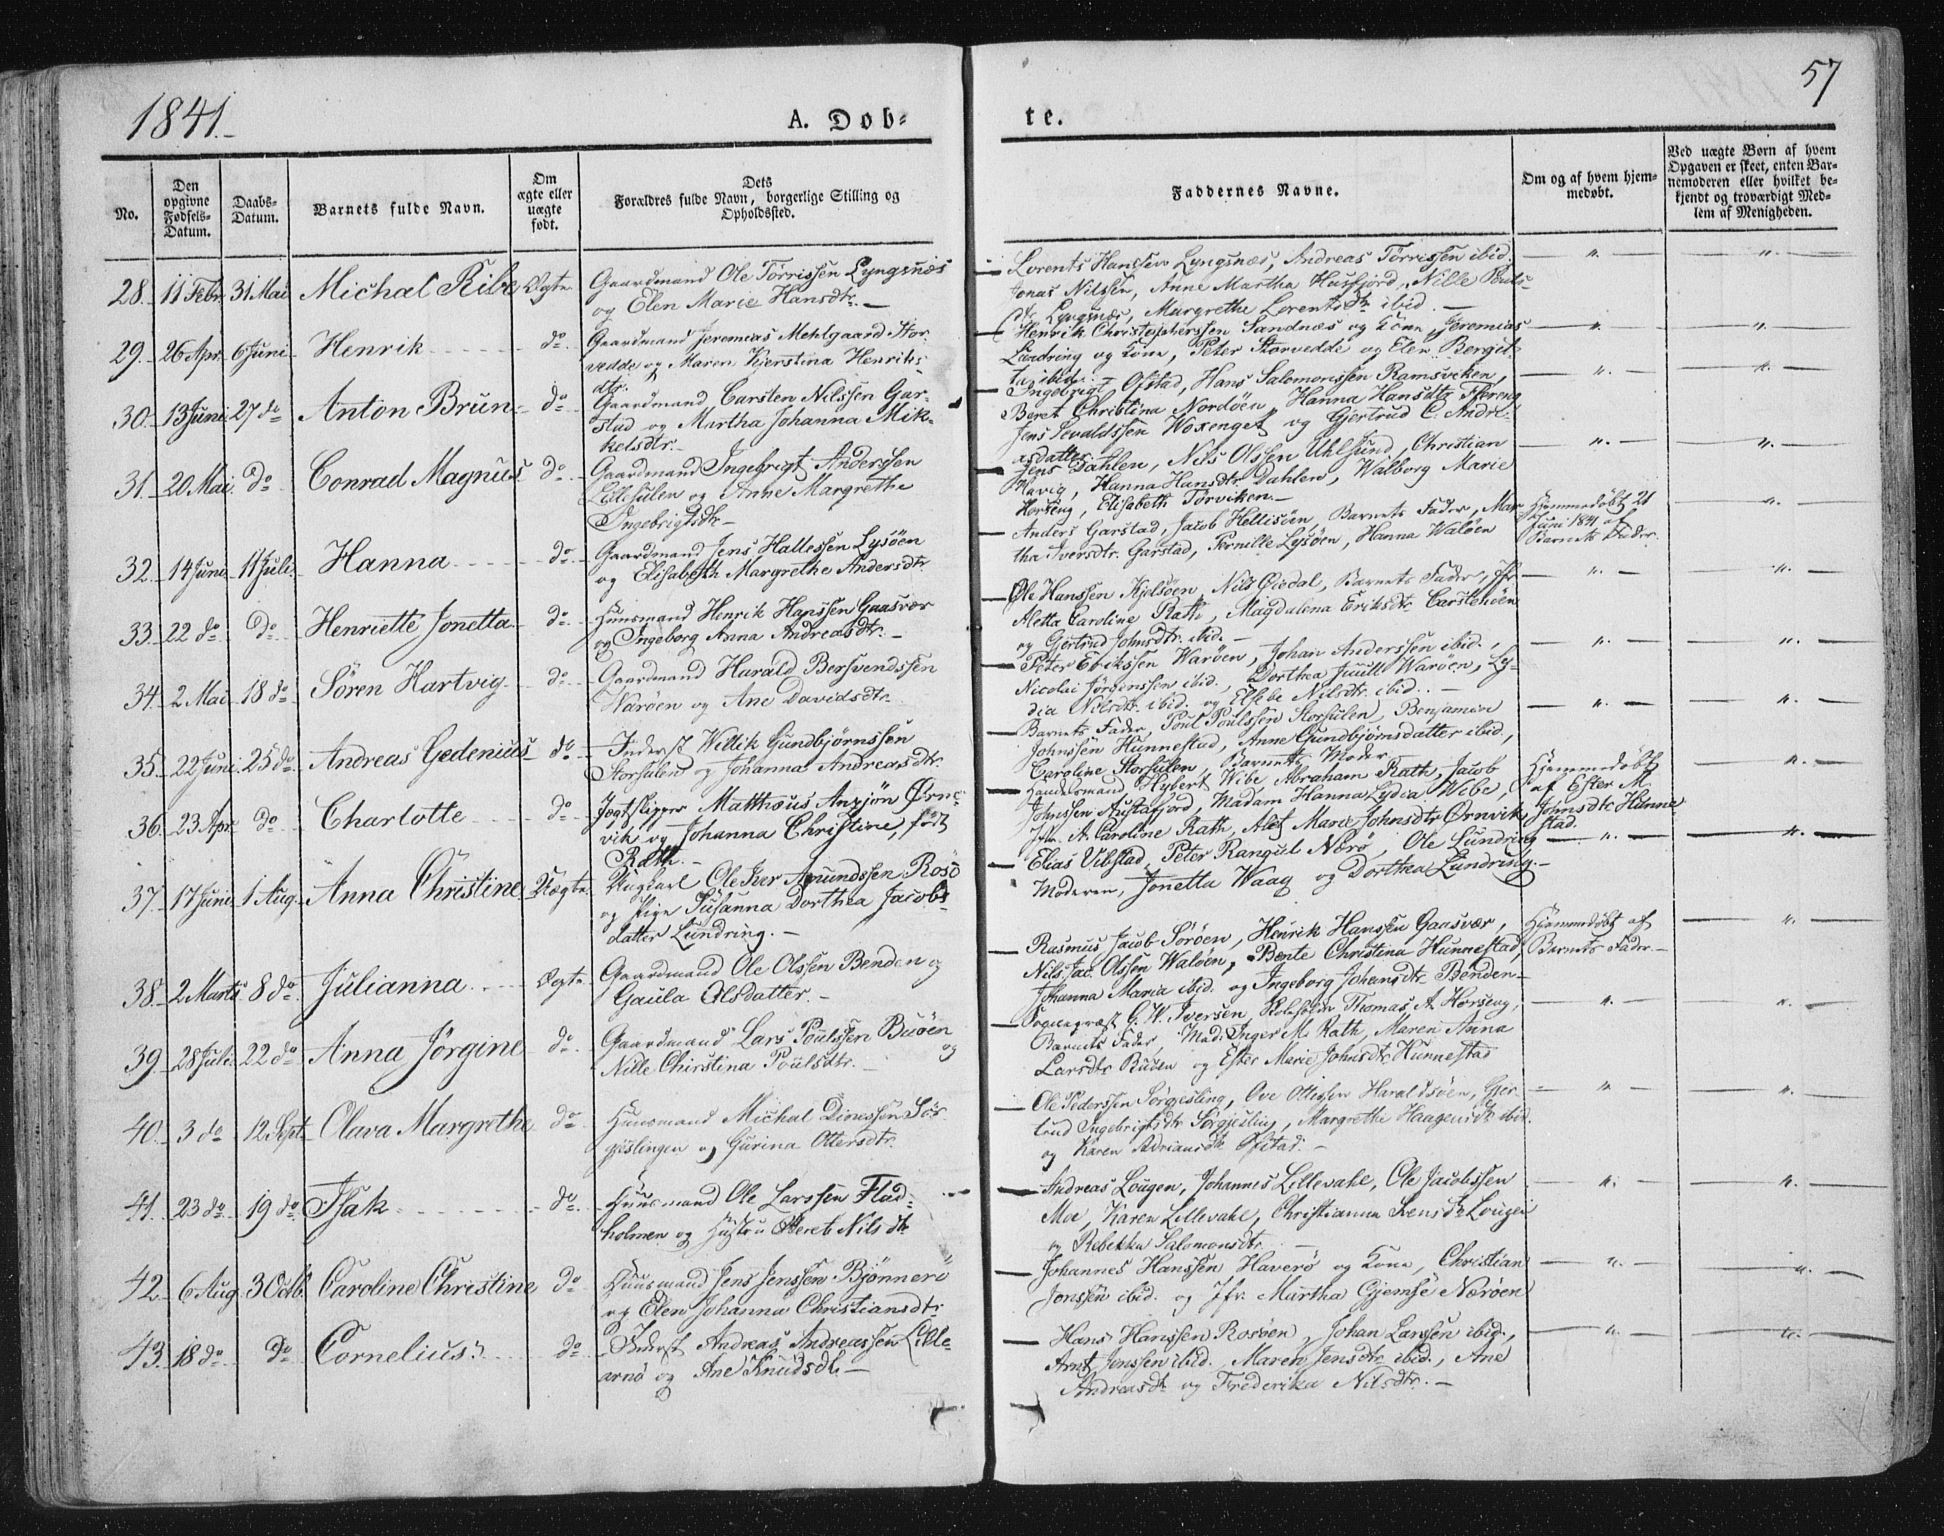 1841.
A. Døb-
te.
57
No.
Den opgivne Fødsels-Datum.
Daabs-Datum.
Barnets fulde Navn.
Om ægte eller uægte født.
Dets Forældres fulde Navn, borgerlige Stilling og Opholdssted.
Faddernes Navne.
Om og af hvem hjemmedøbt.
Ved uægte Børn af hvem Opgaven er skeet, enten Barnemoderen eller hvilket bekjendt og troværdigt Medlem af Menigheden.
28. 11 Febr. 31 Mai Michal Ribe Ægte
Gaardmand Ole Törrissen Lyngsnæs
og Elen Marie Hansdtr.
Lorents Hanssen Lyngsnæs, Andreas Törrissen ibid.
Jonas Nilssen, Anne Martha Husfjord, Nille Pouls-
dtr. Lyngsnæs, Margrethe Lorentsdtr ibid.
29. 26 Apr. 6 Juni Henrik do
Gaardmand Jeremias Mehlgaard Stor-
vedde og Maren Kjerstina Henriks-
dtr.
Henrik Christophersen Sandnæs og Kone, Jeremias
Lundring og Kone, Peter Storvedde og Elen Bergit-
ta ibid.
30. 13 Juni 27 do Anton Brun do
Gaardmand Carsten Nilssen Gar-
stad og Martha Johanna Mik-
kelsdtr.
Ingebrigt Ofstad, Hans Salomonssen Ramsviken,
Beret Christina Nordöen, Hanna Hansdtr
Jens Sevaldssen Woxenget og Gjertrud C. Andre-
asdatter.
31. 20 Mai do Conrad Magnus do
Gaardmand Ingebrigt Anderssen
Lillesulen og Anne Margrethe
Ingebrigtsdtr
Jens Dahlen, Nils Olssen Uhlsund, Christian
Mavig, Hanna Hansdtr Dahlen, Walborg Marie
Horseng, Elisabeth Törviken.
32. 14 Juni 11 Juli Hanna do
Gaardmand Jens Hallessen Lysöen
og Elisabeth Margrethe Andersdtr
Anders Garstad, Jacob Hellisöen, Barnets Fader, Mar-
tha Iversdtr. Garstad, Pernille Lysöen, Hanna Walöen
Hjemmedøbt 21
Juni 1841 af
Barnets Fader.
33. 22 do do Henriette Jonetta do
Huusmand Henrik Hanssen Gaasvær
og Ingeborg Anna Andreasdtr.
Ole Hanssen Kjelsöen, Nils Qvedal, Barnets Fader, Jfr
Aletta Caroline Rath, Magdalena Eriksdtr Carstenöen
og Gjertrud Johnsdtr. ibid.
34. 2 Mai 18 do Sören Hartvig do
Gaardmand Harald Bersvendssen
Waröen og Ane Davidsdtr.
Peter Erikssen Waröen, Johan Anderssen ibid.,
Nicolai Jörgenssen ibid., Dorthea Juull Waröen, Ly-
dia Nilsdtr. ibid. og Elsebe Nilsdtr. ibid.
35. 22 Juni 25 do Andreas Gedenius do
Inderst Willik Gundbjörnssen
Storsulen og Johanna Andreasdtr.
Barnets Fader, Poul Poulssen Storsulen, Benjamin
Johnssen Hunnestad, Anne Gundbjörnsdatter ibid.,
Caroline Storsulen, Barnets Moder
36. 23 Apr. do Charlotte do
Jagtskipper Matthæus Anzjön Örne-
vik og Johanna Christine, født
Rath.
Handelsmand Hybert Wibe, Abraham Rath, Jacob
Johnssen Austafjord, Madam Hanna Lydia Wibe,
Jfr. A. Caroline Rath, Alet Marie Johnsdtr Örnvik
Hjemmedøbt
af Ester M.
Johnsdtr Hunne-
stad.
37. 17 Juni 1 Aug. Anna Christine Uægte
Ungkarl Ole Iver Amundssen Rosö
og Pige Susanna Dorthea Jacobs-
datter Lundring.
Elias Vibstad, Peter Rangul Nærö, Ole Lundring
Moderen, Jonetta Waag og Dorthea Lundring.
38. 2 Marts 8 do Julianna Ægte
Gaardmand Ole Olssen Benden og
Gaula Olsdatter.
Rasmus Jacob Söröen, Henrik Hanssen Gaasvær,
Nils Jac. Olssen Walöen, Bente Christina Hunnestad,
Johanna Maria ibid. og Ingeborg Johansdtr Benden
Hjemmedøbt af
Barnets Fader
39. 28 Juli 22 do Anna Jörgine do
Gaardmand Lars Poulssen Buöen og
Nille Christina Poulsdtr.
Sognepræst G. W. Iversen, Thomas A. Horseng,
Barnets Fader, Mad. Inger M. Rath, Maren Anna
Larsdtr Buöen og Ester Marie Johnsdtr. Hunnestad
40. 3 do 12 Sept. Olava Margrethe do
Huusmand Michal Dinessen Sör-
gjislingen og Gurina Ottersdtr.
Ole Pederssen Sörgjesling, Ove Haraldsöen, Gjer-
trud Ingebrigtsdtr Sörgjesling, Margrethe Haagensdtr ibid.
og Karen Adriansdtr. Ofstad.
41. 23 do 19 do Isak do
Huusmand Ole Larssen Flad-
holmen og Beret Nilsdtr.
Andreas Lougen, Johannes Lillevahl, Ole Jacobssen
Moe, Karen Lillevahl, Christianna Lougen
og Rebekka Salomonsdtr.
42. 6 Aug. 3 Octb. Caroline Christine do
Huusmand Jens Jenssen Björnerö
og Elen Johanna Christiansdtr.
Johannes Hanssen Haverö og Kone, Christian
Jonssen ibid. og Jfr. Martha Gjemse Næröen
43. 18 do do Cornelius do
Inderst Andreas Andreassen Lille-
arnö og Ane Knudsdtr.
Hans Hanssen Rosöen, Johan Larssen ibid.,
Arnt Jenssen ibid., Maren Jensdtr. ibid., Ane
Andreasdtr og Frederika Nilsdtr.